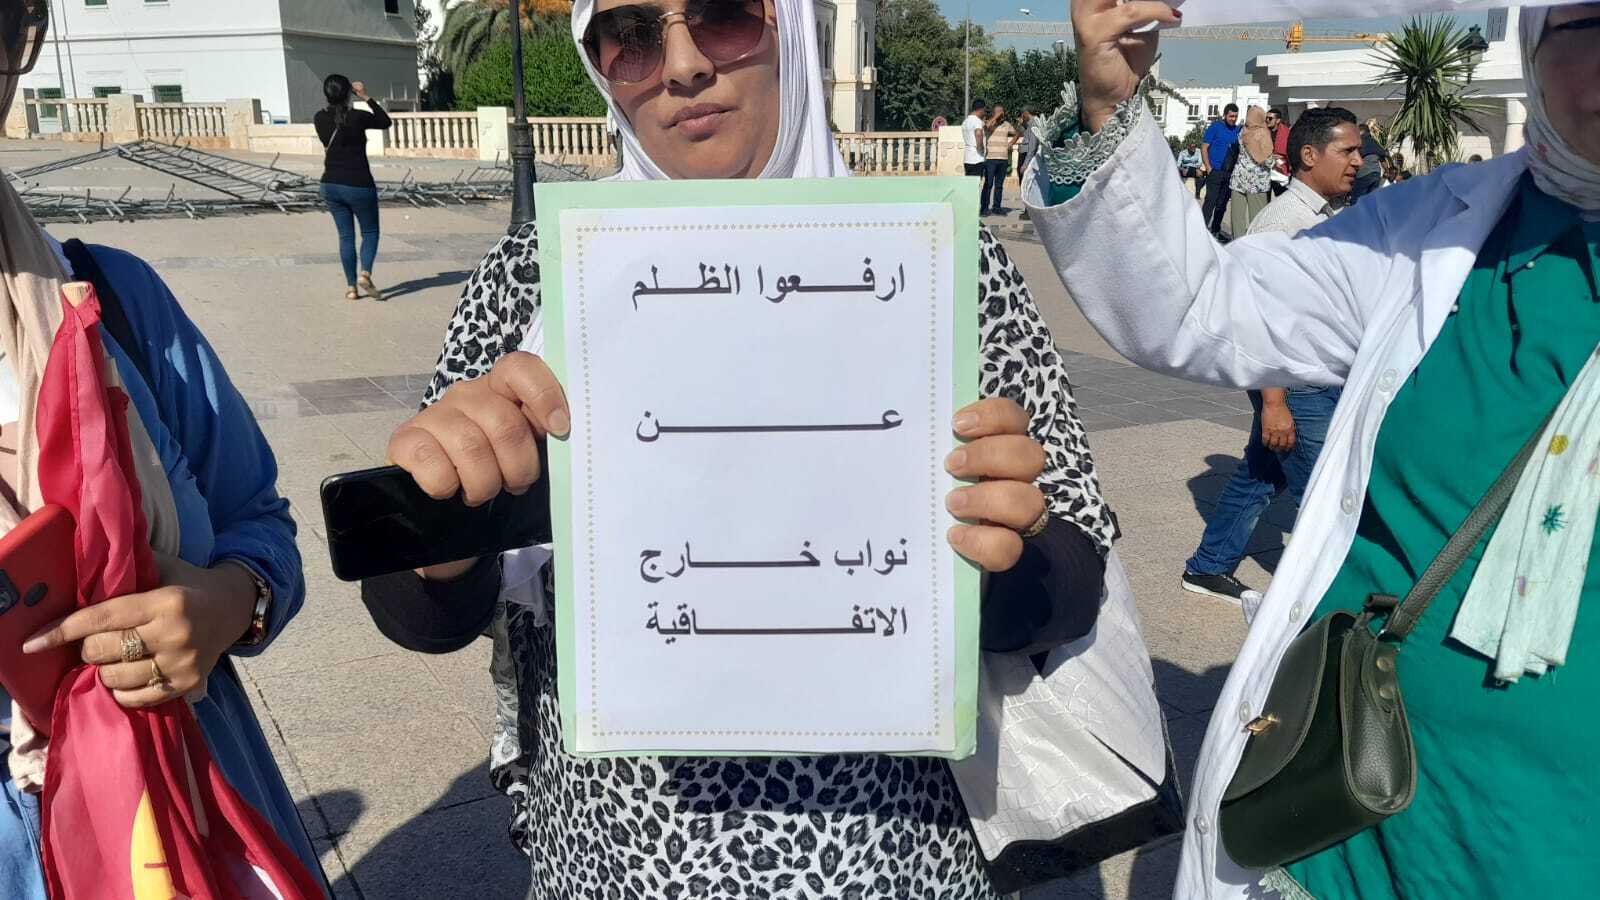 ارفعوا الظلم
عن
نواب خارج
الاتفاقية